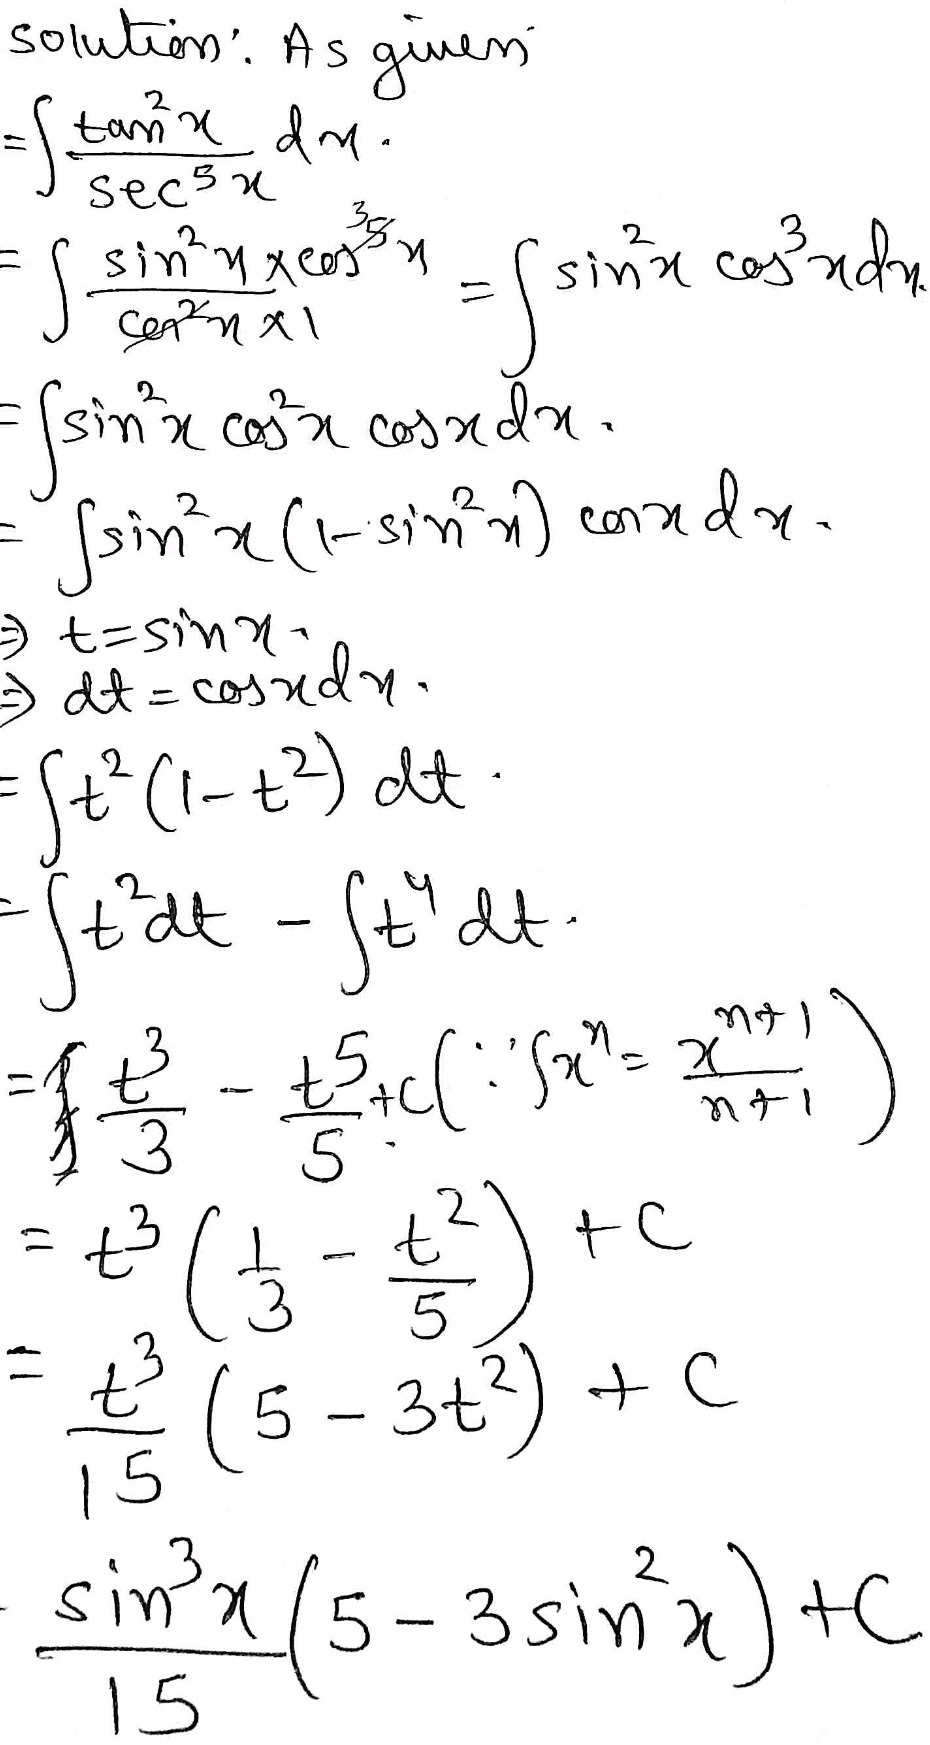 solution: As given
= ∫ tan²x / sec⁵x dx.
= ∫ sin²x × cos³ ⁵x / cos²x × 1 = ∫ sin²x cos³x dx.
= ∫ sin²x cos²x cosx dx.
= ∫ sin²x (1 - sin²x) cosx dx.
⇒ t = sinx.
⇒ dt = cosx dx.
= ∫ t² (1 - t²) dt.
= ∫ t² dt - ∫ t⁴ dt.
= t³/3 - t⁵/5 + c (∵ ∫xⁿ = xⁿ⁺¹/n+1)
= t³ (1/3 - t²/5) + C
= t³/15 (5 - 3t²) + C
- sin³x/15 (5 - 3 sin²x) + C